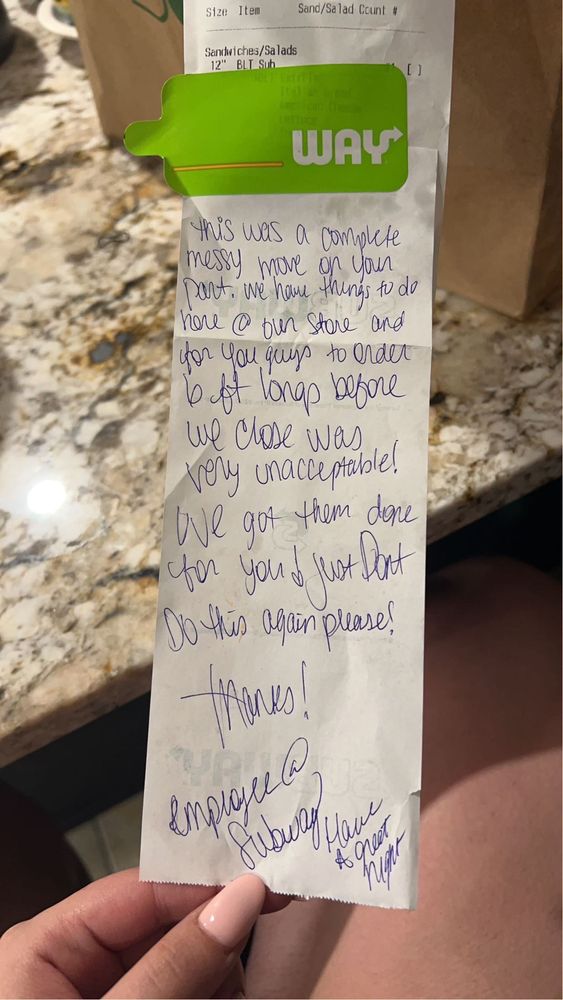 Size Item Sand/Salad Count #
Sandwiches/Salads
12" BLT Sub [ ]
American Cheese
Lettuce
WAY
This was a complete
messy move on your
part. We have things to do
here @ our store and
for you guys to order
6 ft longs before
we close was
very unacceptable!
We got them done
for you & just Dont
Do this again please!
Thanks!
employee @
Subway Have
A great
night